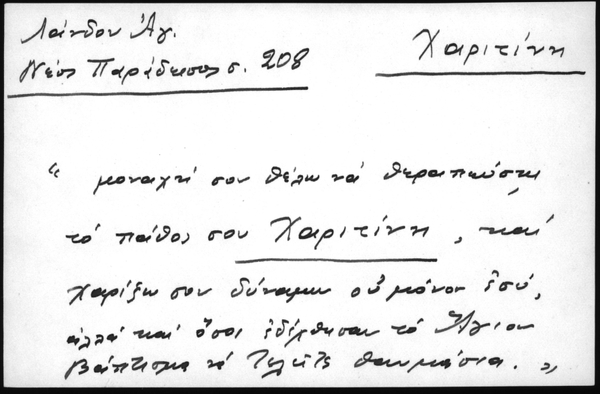 Λάνδου Ἀγ.
Νέος Παράδεισος σ. 208
Χαριτίνη
“ μοναχή σου θέλω νά θεραπεύσῃς
τό πάθος σου Χαριτίνη, καί
χαρίζω σου δύναμιν οὐ μόνον ἐσύ,
ἀλλά καί ὅσοι ἐδέχθησαν τό Ἅγιον
Βάπτισμα νά τελῆτε θαυμάσια. „